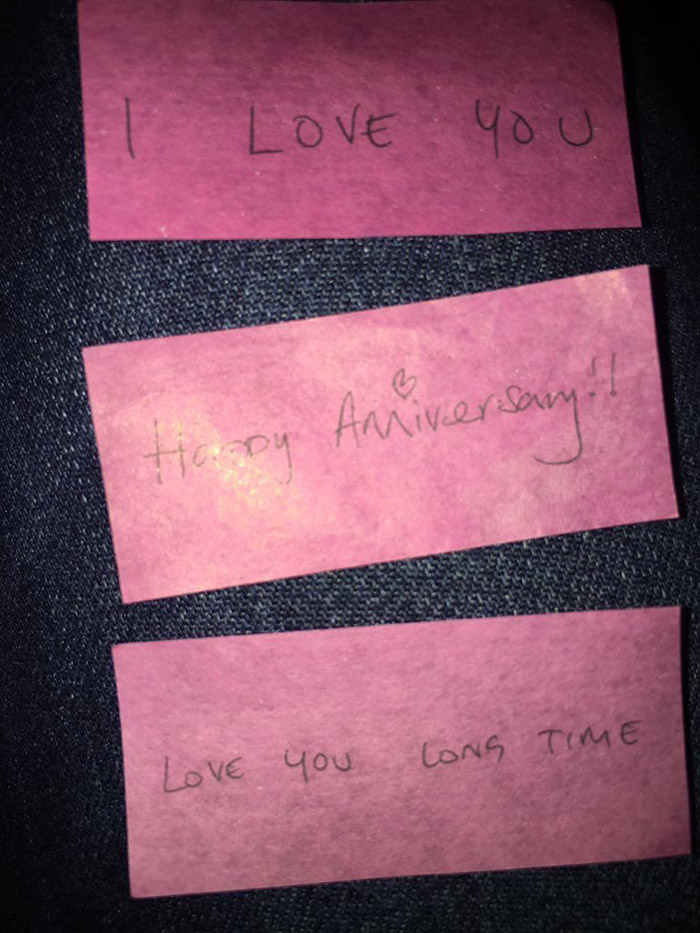 I LOVE YOU
Happy Anniversary!!
LOVE YOU LONG TIME